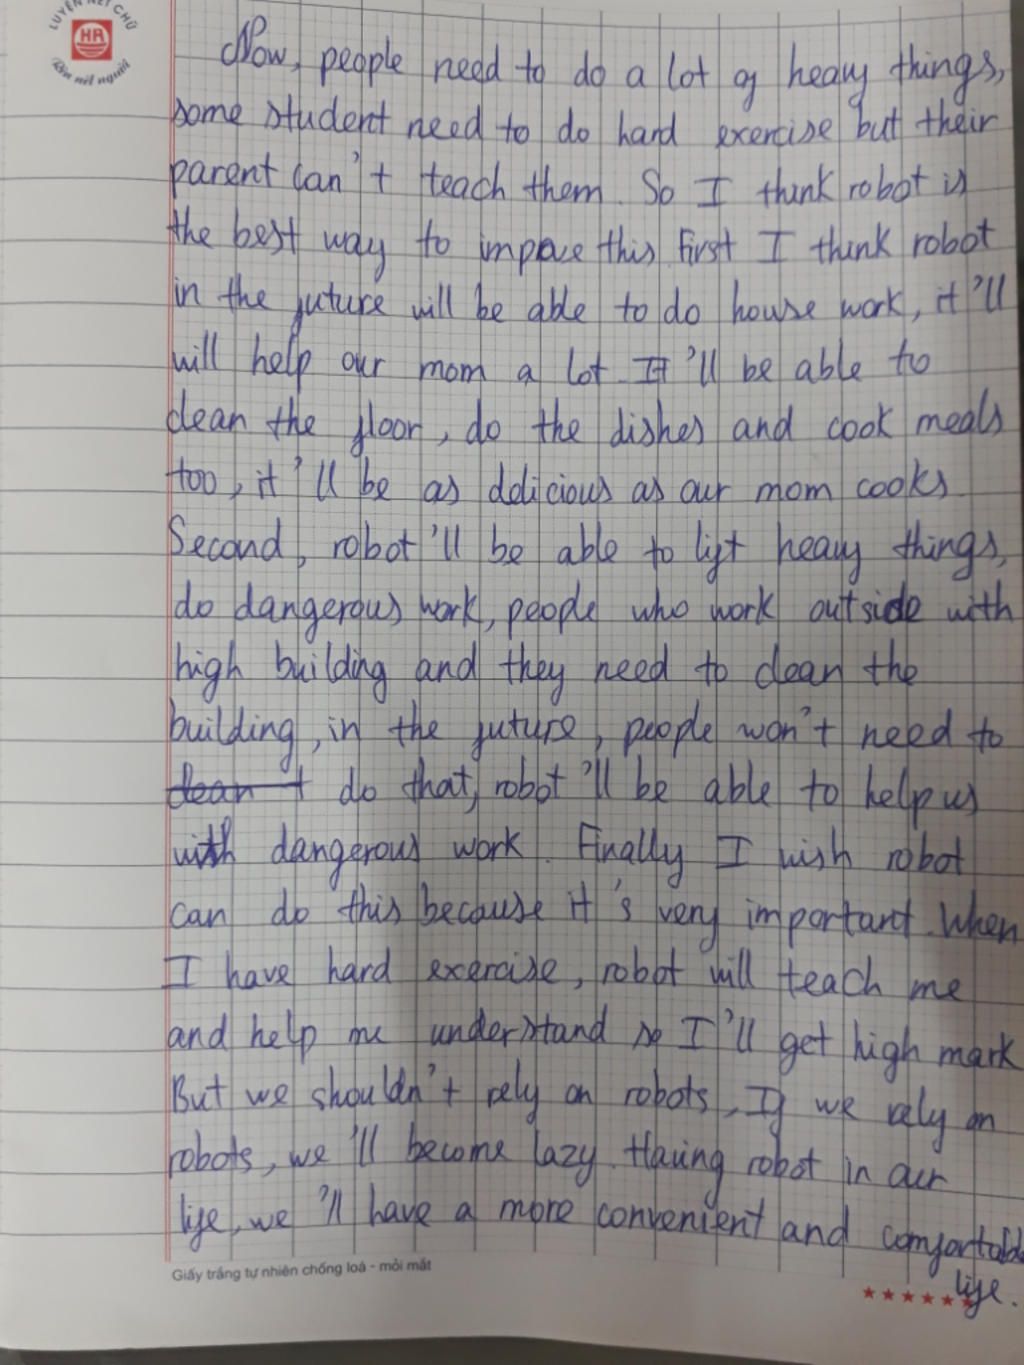 LUYỆN NÉT CHỮ
HR
Rèn nết người
Now, people need to do a lot of heavy things,
some student need to do hard exercise but their
parent can't teach them. So I think robot is
the best way to improve this. First I think robot
in the future will be able to do house work, it'll
will help our mom a lot. It'll be able to
clean the floor, do the dishes and cook meals
too, it'll be as delicious as our mom cooks.
Second, robot'll be able to lift heavy things,
do dangerous work, people who work outside with
high building and they need to clean the
building, in the future, people won't need to
do that, robot'll be able to help us
with dangerous work. Finally I wish robot
can do this because it's very important. When
I have hard exercise, robot will teach me
and help me understand so I'll get high mark
But we shouldn't rely on robots, If we rely on
robots, we'll become lazy. Having robot in our
life, we'll have a more convenient and comfortable
life.
Giấy trắng tự nhiên chống loá - mỏi mắt